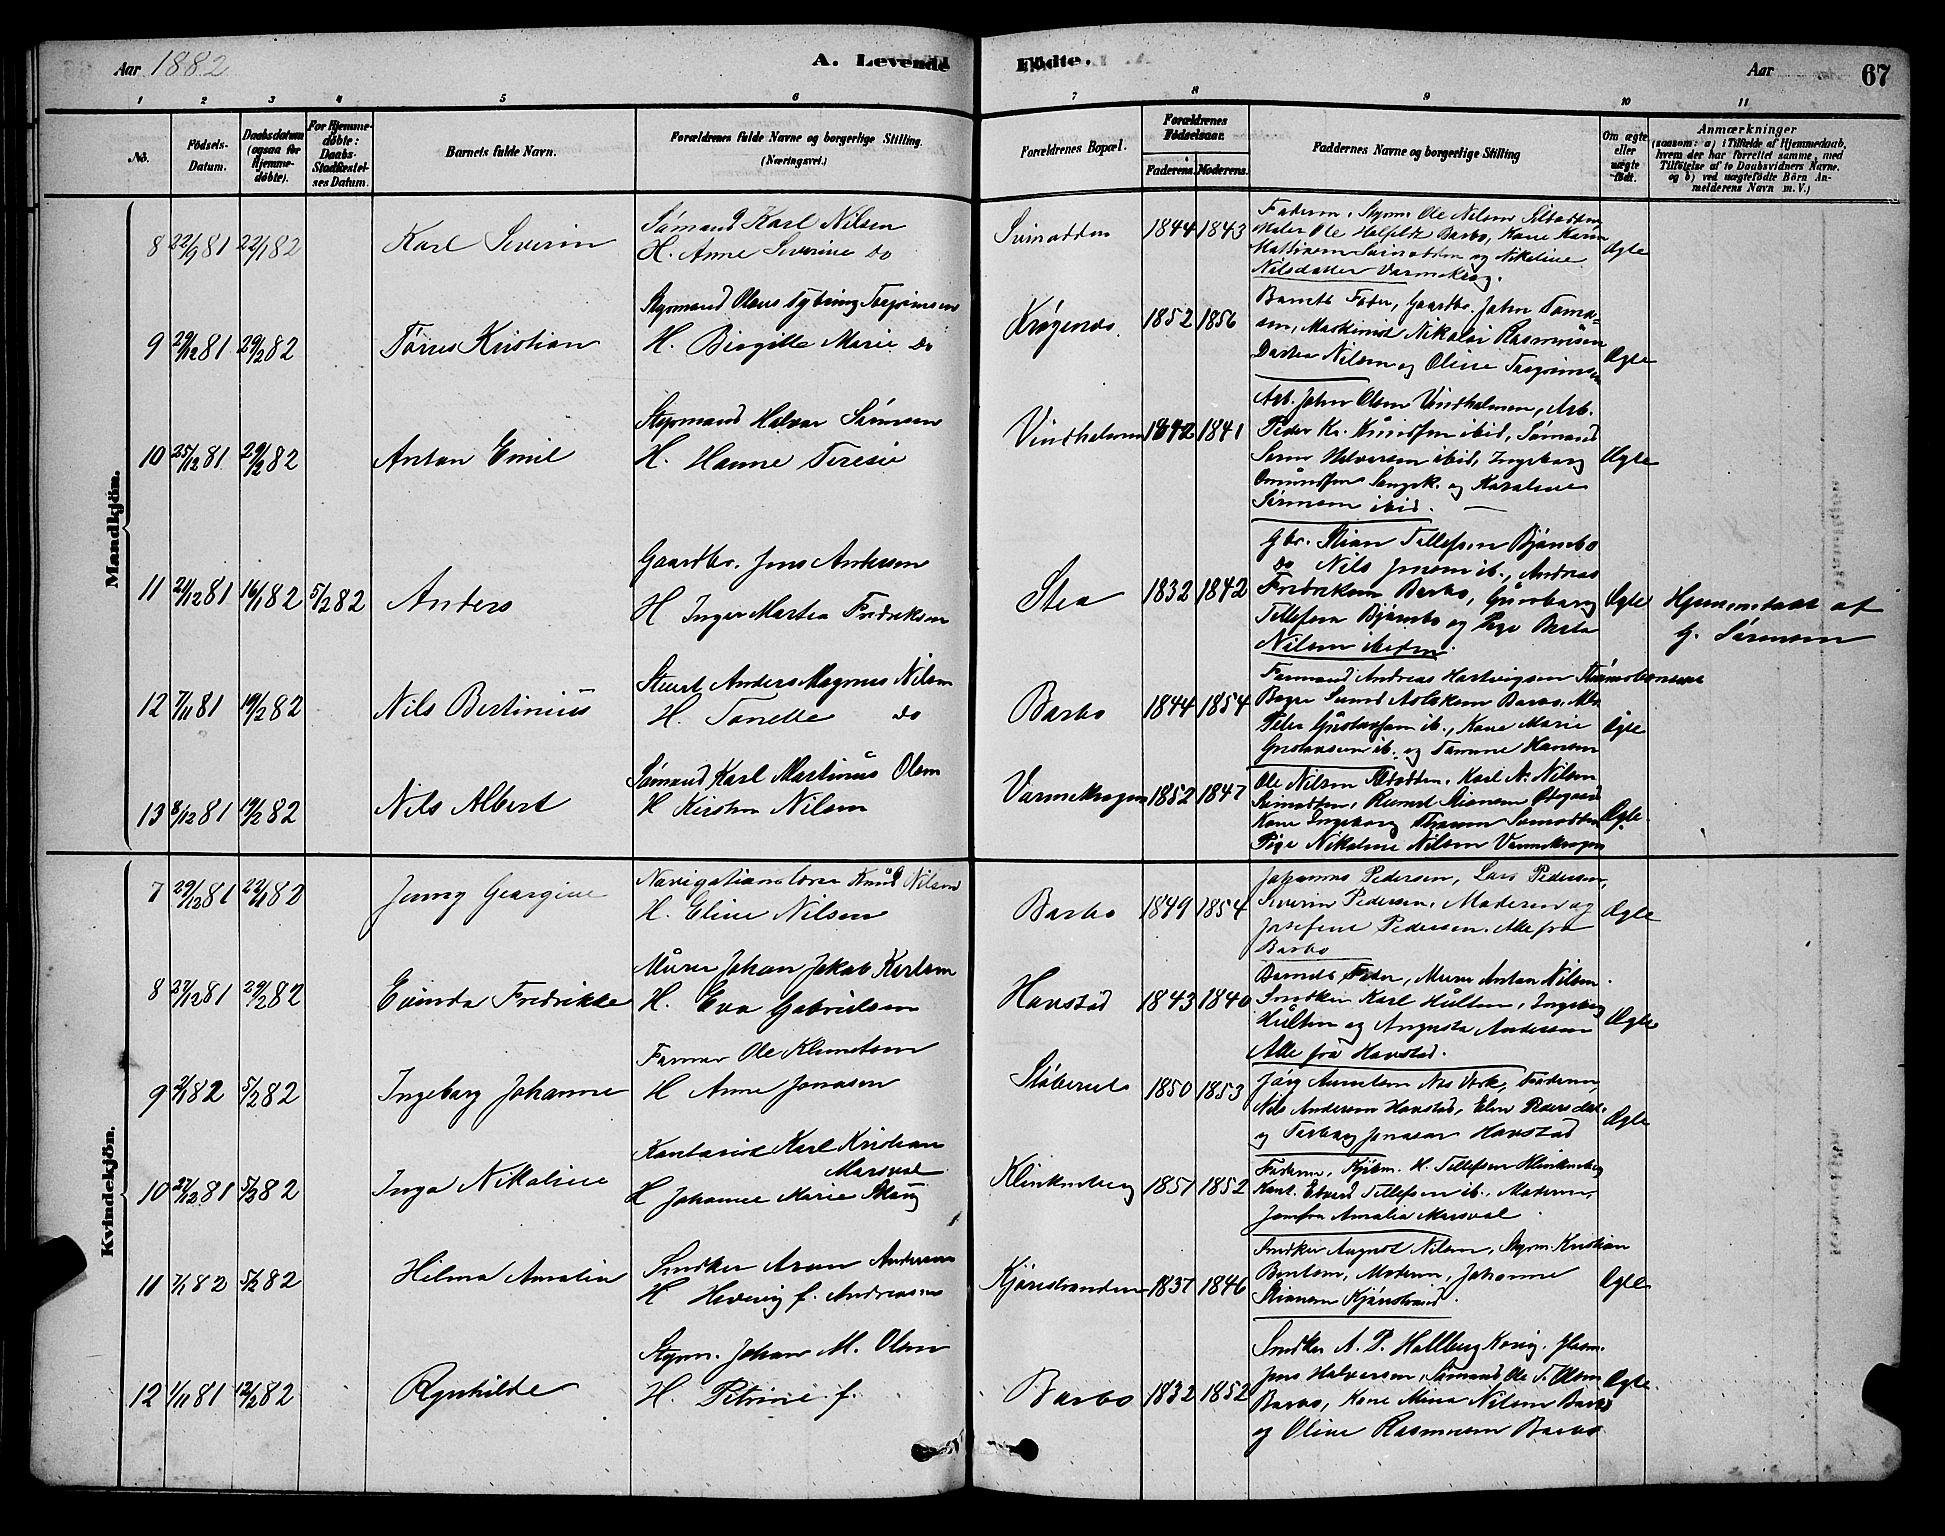 Aar 1882
A. Levende Födte.
Aar
67
1 2 3 4 5 6 7 8 9 10 11
No.
Födsels-Datum.
Daabsdatum (ogsaa for Hjemme-döbte).
For Hjemme-döbte: Daabs-Stadfæstel-ses Datum.
Barnets fulde Navn.
Forældrenes fulde Navne og borgerlige Stilling.
(Næringsvei.)
Forældrenes Bopæl.
Forældrenes Födselsaar.
Faderens. Moderens.
Faddernes Navne og borgerlige Stilling
Om ægte eller uægte födt.
Anmærkninger
(saasom: a) i Tilfælde af Hjemmedaab,
hvem der har forrettet samme, med
Tilföielse af to Daabsvidners Navne.
og b) ved uægtefödte Börn An-
melderens Navn m. V.)
Mandkjön.
8 22/9 81 22/1 82 Karl Severin
Sömand Karl Nilsen
H. Anne Severine do
Svinodden 1844 1843
Faderen, Styrm. Ole Nilsen
Maler Ole Barbo, Kone Karen
Svinodden og Nikoline
Nilsdatter Varmekrog.
Ægte
9 29/12 81 29/2 82 Törres Kristian
Styrmand Olaus Torgrimsen
H. Birgitte Marie do
Krögenes 1852 1856
Barnets Fader, Gaardbr. John
Maskinist Nikolai Rasmussen
Nilsen og Oline Torgrimsen
Ægte
10 25/12 81 29/2 82 Anton Emil
Styrmand Halvor Sörensen
H. Hanne Teresie
Vindholmen 1842 1841
Arb. John Olsen Vindholmen, Arb.
Peder Kr. Knudsen ibid, Sömand
Halvorsen ibid, Ingeborg
og Karoline
Sörensen ibid.
Ægte
11 21/12 81 16/1 82 5/2 82 Anders
Gaardbr. Jens Andersen
H Inger Martea Fredriksen
Stea 1832 1842
Gbr. Stian Tellefsen Bjönnebo
do Nils Jensen ib., Andreas
Fredriksen Barbo, Gunborg
Tellefsen og Pige Berta
Nilsen
Ægte
Hjemmedøbt af
G. Sörensen
12 7/11 81 19/2 82 Nils Bertinius
Stuert Anders Magnus Nilsen
H. Tonette do
Barbo 1844 1854
Andreas Hartvigsen
Bager Aslaksen Barbo,
Gustavsen ib., Kone Marie
Gustavsen ib. og Hansen
Ægte
13 8/12 81 19/2 82 Nils Albert
Sömand Karl Martinus Olsen
H Kirsten Nilsen
Varmekrogen 1852 1847
Ole Nilsen, Karl N. Nilsen
Svinodden, Stiansen
Kone Ingeborg Svinodden
Pige Nikoline Nilsen Varmekrogen
Ægte
Kvindekjön.
7 29/12 81 22/1 82 Jenny Georgine
Navigationslærer Knud Nilsen
H. Eline Nilsen
Barbo 1849 1854
Johannes Pedersen, Lars Pedersen,
Severin Pedersen, Moderen og
Josefine Pedersen. Alle fra
Barbo
Ægte
8 27/12 81 29/2 82 Evinda Fredrikke
Murer Johan Jakob Karlsen
H. Eva Gabrielsen
Havstad 1843 1840
Barnets Fader, Murer Anton Nilsen
Snedker Karl Hulten, Ingeborg
Hulten og Augusta Andersen
Alle fra Havstad.
Ægte
9 2/1 82 5/2 82 Ingeborg Johanne
Farver Ole Klemetsen
H Anne Jonasen
1850 1853
Faderen,
Nils Andersen Havstad, Elen Pedersdat.
og Torborg Jonasen Havstad
Ægte
10 27/12 81 5/2 82 Inga Nikoline
Kontorist Karl Kristian
Marsval
H Johanne Marie Skaug
Klinkenberg 1851 1852
Faderen, H. Tellefsen Klinkenberg
Tellefsen ib., Moderen,
Jomfru Amalia Marsval.
11 7/1 82 5/2 82 Hilma Amalia
Snedker Aron Andersen
H Hevevig f. Andreasen
Kjönstranden 1837 1846
Snedker August Nilsen, Styrm. Kristian
Berntsen, Moderen, Johanne
Stiansen Kjönstrand.
Ægte
12 1/11 81 12/2 82 Regnhilde
Styrm. Johan M. Olsen
H. Petrine f.
Barbo 1832 1852
Snedker A. P. Hallberg
Jens Halvorsen, Sömand Ole T. Olsen
Barbo, Kone Mina Nilsen Barbo
og Oline Rasmussen Barbo
Ægte.